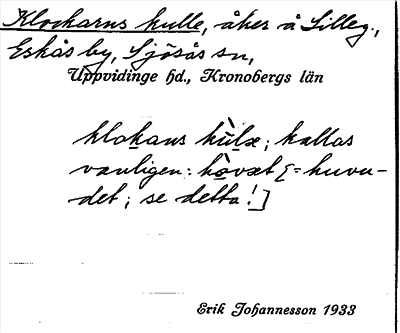 Klockarns kulle, åker å Lilleg.,
Eskås by, Sjösås sn,
Uppvidinge hd., Kronobergs län
klokans kùlæ; kallas
vanligen: hòvæt [= huvu-
det; se detta!]
Erik Johannesson 1933